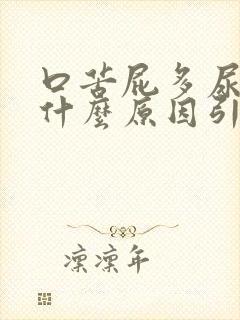 口苦屁多尿
什麼原因引
凜凜年